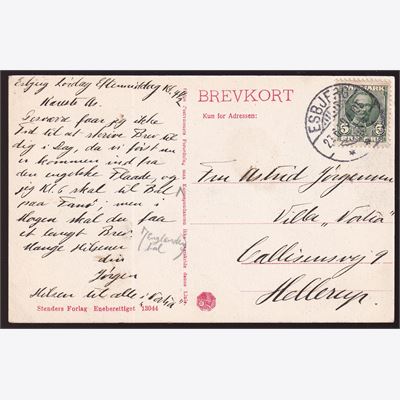 Esbjerg Lørdag Eftermiddag Kl. 4½
Kæreste As.
Desværre faar jeg ikke
Tid til at skrive Brev til
dig i Dag, da vi først nu
er kommen ind fra
den engelske Flaade, og
jeg Kl. 6 skal til Bal
paa Fanø; men i
Morgen skal du faa
et langt Brev.
Mange Hilsener
din
Jørgen
Hilsen til alle i "Vortia"
Stenders Forlag Eneberettiget 13044
BREVKORT
Kun for Adressen:
ESBJERG
5
Frk Astrid Jørgensen
Villa "Vortia"
Callisensvej 9
Hellerup.